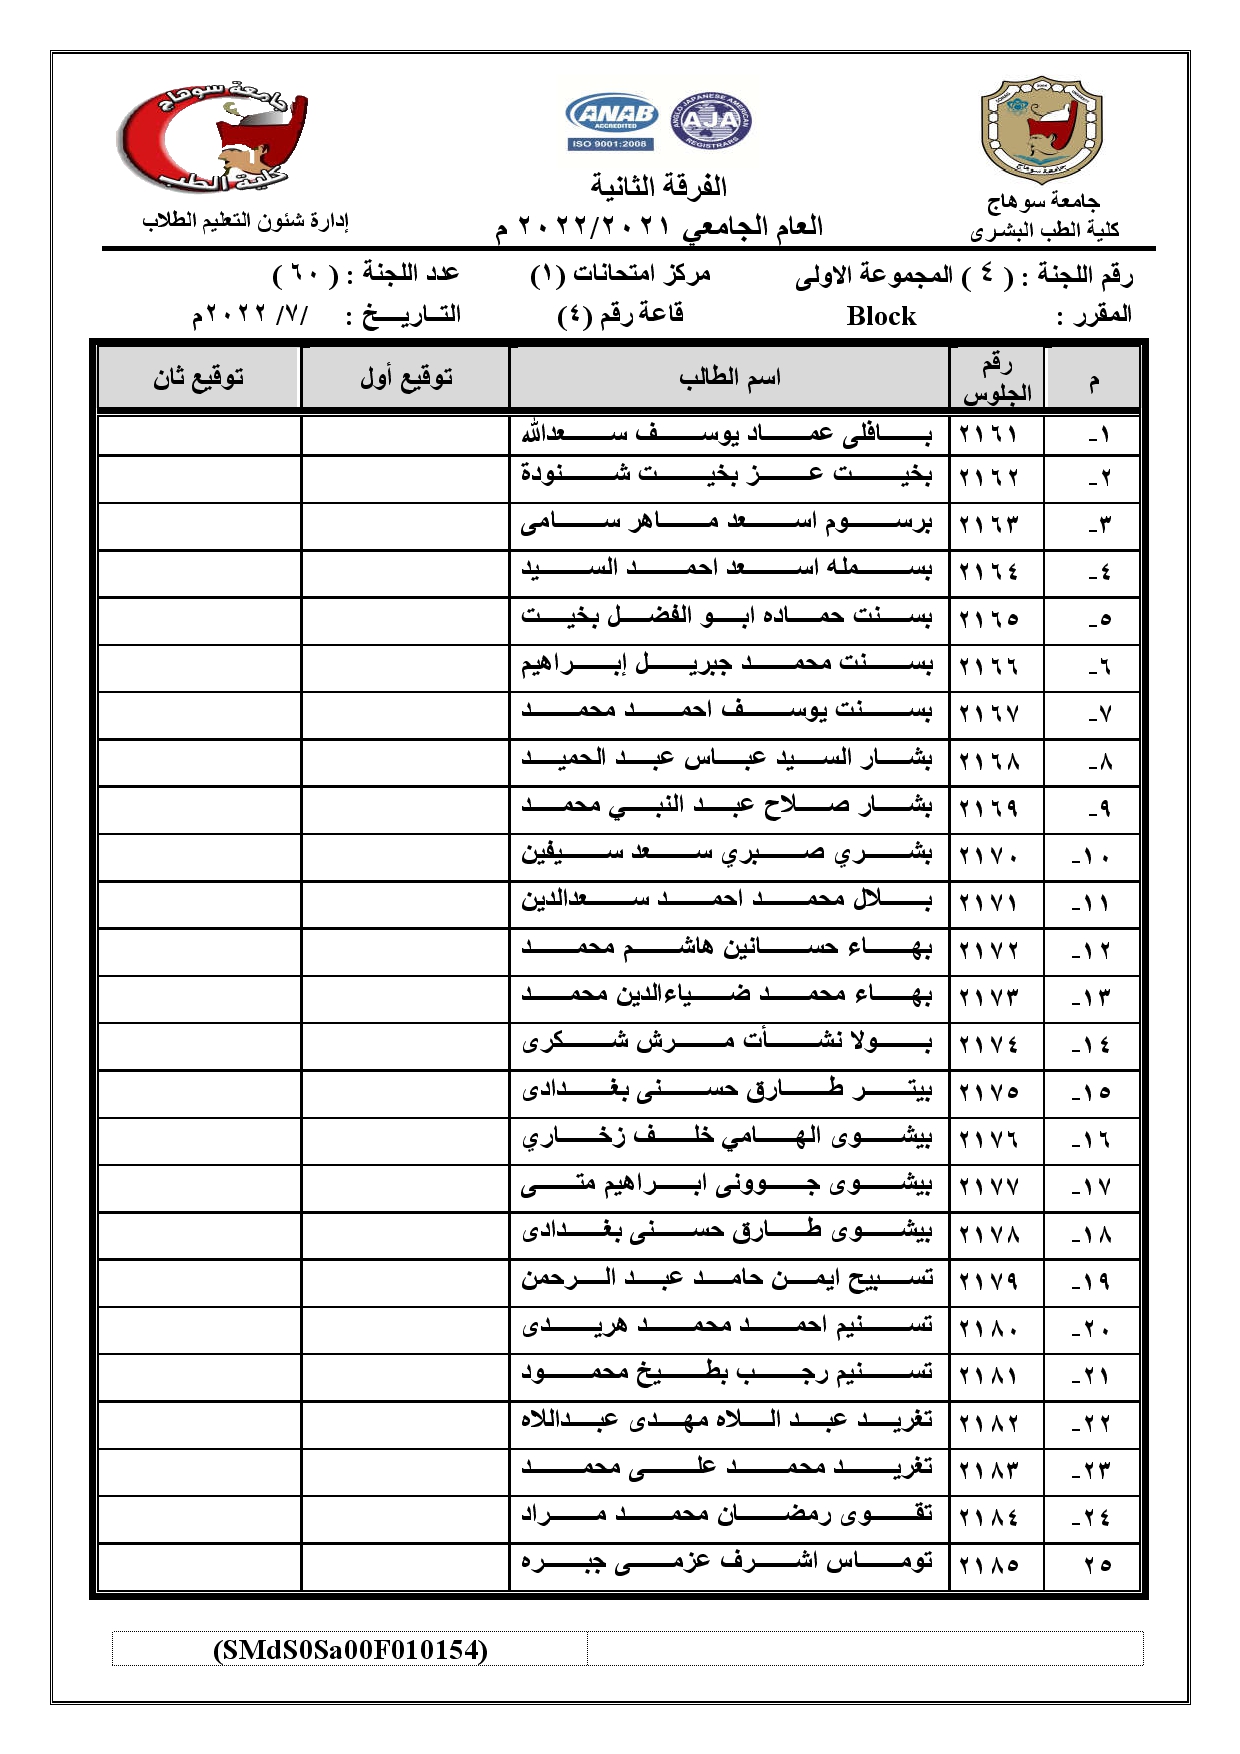 جامعة سوهاج
كلية الطب
ANAB
ACCREDITED
ISO 9001:2008
ANGLO JAPANESE AMERICAN
AJA
REGISTRARS
جامعة سوهاج
جامعة سوهاج
كلية الطب البشرى
الفرقة الثانية
العام الجامعي ٢٠٢٢/٢٠٢١ م
إدارة شئون التعليم الطلاب
رقم اللجنة : ( ٤ ) المجموعة الاولى مركز امتحانات (١) عدد اللجنة : ( ٦٠ )
المقرر : Block قاعة رقم (٤) التـاريـــخ : /٧/ ٢٠٢٢م
م رقم الجلوس اسم الطالب توقيع أول توقيع ثان
١- ٢١٦١ بافلى عماد يوسف سعدالله
٢- ٢١٦٢ بخيت عز بخيت شنودة
٣- ٢١٦٣ برسوم اسعد ماهر سامى
٤- ٢١٦٤ بسمله اسعد احمد السيد
٥- ٢١٦٥ بسنت حماده ابو الفضل بخيت
٦- ٢١٦٦ بسنت محمد جبريل إبراهيم
٧- ٢١٦٧ بسنت يوسف احمد محمد
٨- ٢١٦٨ بشار السيد عباس عبد الحميد
٩- ٢١٦٩ بشار صلاح عبد النبي محمد
١٠- ٢١٧٠ بشري صبري سعد سيفين
١١- ٢١٧١ بلال محمد احمد سعدالدين
١٢- ٢١٧٢ بهاء حسانين هاشم محمد
١٣- ٢١٧٣ بهاء محمد ضياءالدين محمد
١٤- ٢١٧٤ بولا نشأت مرش شكرى
١٥- ٢١٧٥ بيتر طارق حسنى بغدادى
١٦- ٢١٧٦ بيشوى الهامي خلف زخاري
١٧- ٢١٧٧ بيشوى جوونى ابراهيم متى
١٨- ٢١٧٨ بيشوى طارق حسنى بغدادى
١٩- ٢١٧٩ تسبيح ايمن حامد عبد الرحمن
٢٠- ٢١٨٠ تسنيم احمد محمد هريدى
٢١- ٢١٨١ تسنيم رجب بطيخ محمود
٢٢- ٢١٨٢ تغريد عبد اللاه مهدى عبداللاه
٢٣- ٢١٨٣ تغريد محمد على محمد
٢٤- ٢١٨٤ تقوى رمضان محمد مراد
٢٥ ٢١٨٥ توماس اشرف عزمى جبره
(SMdS0Sa00F010154)